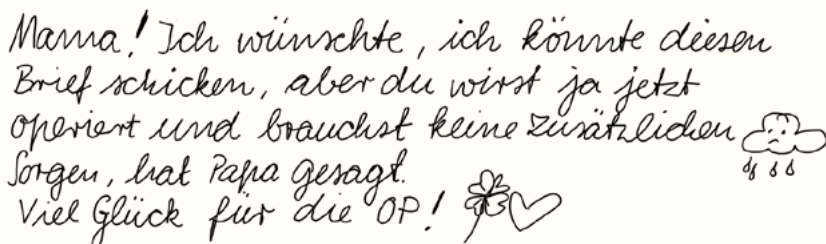 Mama! Ich wünschte, ich könnte diesen
Brief schicken, aber du wirst ja jetzt
operiert und brauchst keine zusätzlichen
Sorgen, hat Papa gesagt.
Viel Glück für die OP!